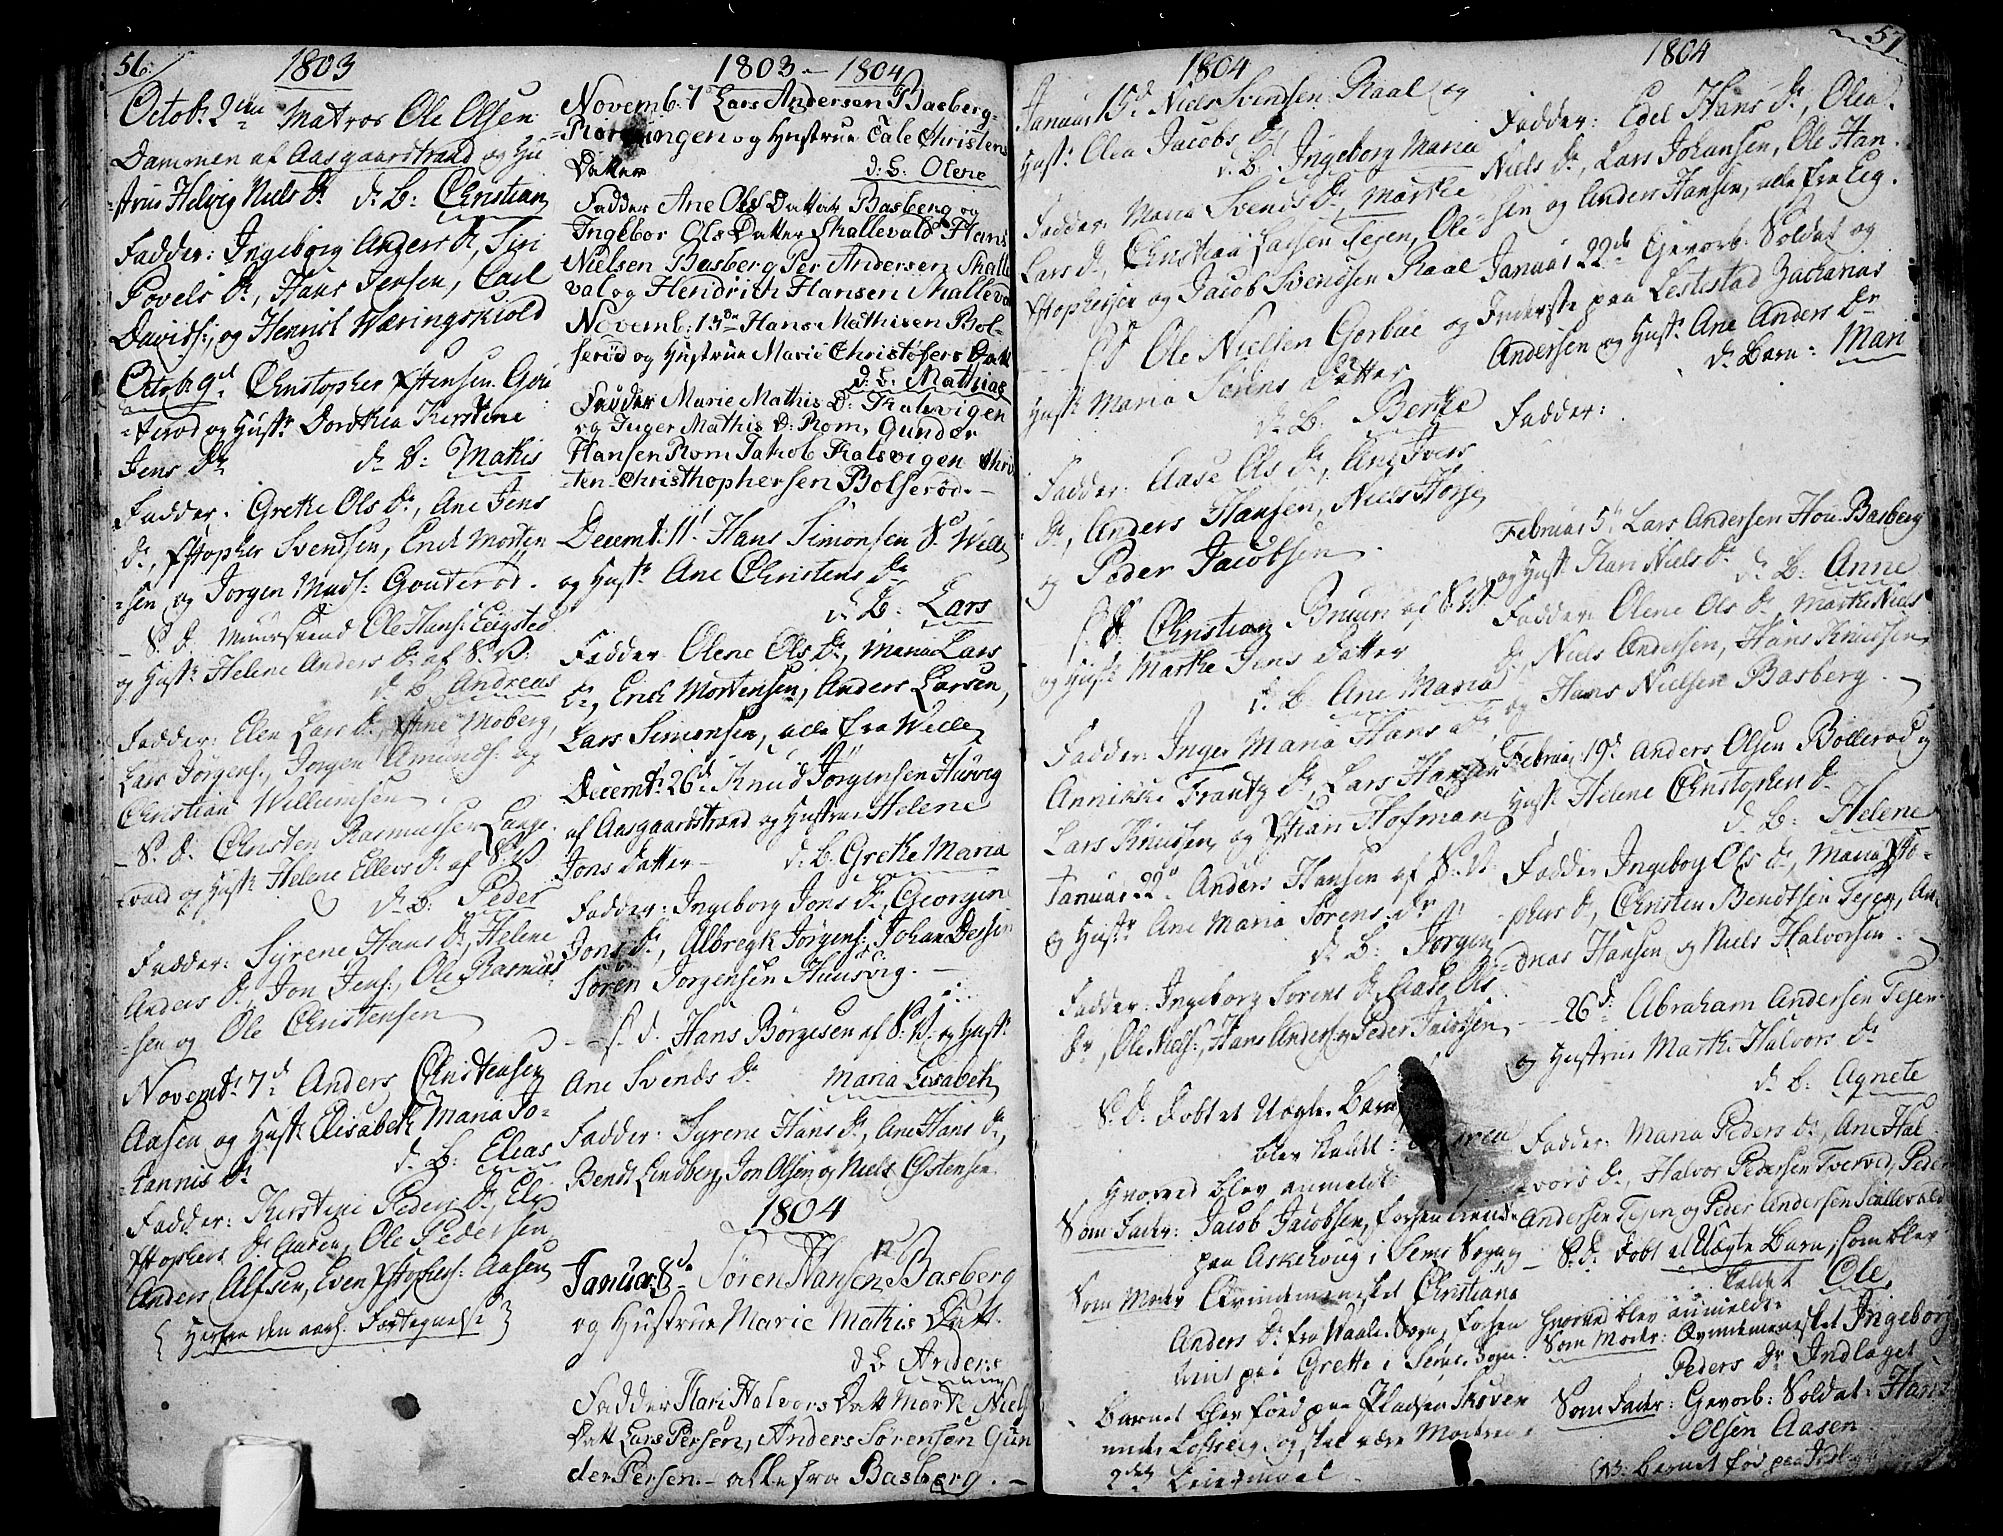 56.
1803
Octob: 2den Matros Ole Olsen
Dammen af Aasgaardstrand og Hu
=strue Helvig Niels Dr d: B: Christian
Fadder: Ingeborg Anders Dr, Siri
Povels Dr, Hans Jensen, Carl
Davids:, og Henrik Væringskiold
Octob: 9d Christopher Estensen Gou
=terød og Hustr Dorthea Kirstine
Jens Dr d: B: Mathis
Fadder: Grethe Ols Dr, Ane Jens
Dr, Xstopher Svendsen, Erich Morten
=sen og Jorgen Mads: Gouterød.
S. D. Muursvend Ole Hans: Eegsted
og Hustr Helene Anders Dr af S: V:
d: B: Andreas
Fadder: Elen Lars Dr, Moberg,
Lars Jörgens:, Jorgen Amunds: og
Christian Willumsen
S. D. Christen Rasmussen Lange
vald og Hustr Helene Ellevs Dr af S: V
d: B: Peder
Fadder: Syrene Hans Dr, Helene
Anders Dr, Jon Jens:, Ole Rasmus
=sen og Ole Christensen
Novemb: 7d Anders Christensen
Aasen og Hustr Elisabeth Maria Jo-
hannis Dr d: B: Elias
Fadder: Kirstine Peders Dr, Els
Xstophers Dr Aasen, Ole Pedersen
Anders Alfsen, Even Xstophers: Aasen
{ Herfra den aarl. Fortegnelse }
1803 - 1804
Novemb: 7 Lars Andersen Basberg-
Rørvingen og Hustrue Tale Christens
Datter d: B: Olene
Fadder Ane Ols Datter Basberg og
Ingebor Ols Datter Skallevald Hans
Nielsen Basberg Per Andersen Skalle
val og Hendrich Hansen Skalleval
Novemb: 13de Hans Mathisen Bol-
serød og Hustrue Marie Christofers Datt
d: B: Mathias
Fadder Marie Mathis D: Kalsvigen
og Inger Mathis D: Rom, Gunder
Hansen Rom Jakob Kalsvigen Chris
=ten Christhophersen Bolserød. -
Decemb: 11t Hans Simonsen S. Welle
og Hustr Ane Christens Dr
d: B: Lars
Fadder Olene Ols Dr, Maria Lars
Dr, Erich Mortensen, Anders Larsen,
Lars Simonsen, alle fra Welle
Decemb: 26d Knud Jörgensen Husvig
af Aasgaardstrand og Hustrue Helene
Jons Datter - d: B. Grethe Maria
Fadder: Ingeborg Jons Dr, Georgin
Jons Dr, Albregt Jörgens:, Johan Dessin
Søren Jorgensen Huusvig. -
- S. D. Hans Börgesen af S: V: og Hustr
Ane Svends Dr Maria Lisabeth
Fadder: Syrene Hans Dr, Ane Hans Dr,
Bendt Lindberg, Jon Olsen og Niels Estensen
1804
Januar 8de Søren Hansen Basberg
og Hustrue Marie Mathis Datt.
d: B Anders
Fadder Kari Halvors Datt Marte Niels
Datt Lars Persen, Anders Sörensön Gun
der Persen - alle fra Basberg. -
1804
Januar 15d Niels Svendsen Raal og
Hustr: Olea Jacobs Dr
d: B. Ingeborg Maria
Fadder: Maria Svends Dr, Marthe
Lars Dr, Christian Larsen Tejen, Ole
Xstophersen og Jacob Svendsen Raal
S D Ole Nielsen Gorboe og
Hustr Maria Sörens Datter
d: B. Berthe
Fadder: Aase Ols Dr, Ane Ivers
Dr, Anders Hansen, Niels Torje
og Peder Jacobsen.
S. D. Christian Bruun af S. V
og Hustr Marthe Jens Datter
d. B. Ane Maria
Fadder: Inger Maria Hans Dr,
Annikke Frantz Dr, Lars Hansen
Lars Knudsen og Xstian Hofman
Januar 22d Anders Hansen af S: V:
og Hustr Ane Maria Sörens Dr
d: B: Jorgen
Fadder: Ingeborg Sorens Dr, Aase Ols
Dr, Ole Niels:, Hans Anders: og Peder Jacobsen
S. D. Döbt et Uægte Barn
blev kaldt:
Hvorved blev anmeldt
Som Fader: Jacob Jacobsen,
paa Askehoug i Sems Sogn
Som Moder Qvindemennesket Christiane
Anders Dr fra Vaale Sogn,
paa Grette i Sems Sogn.
Barnet blev föed paa Pladsen Skoven
under og skal være Moderens
Leiermaal
1804
57
Fadder: Edel Hans Dr, Olea
Niels Dr, Lars Johansen, Ole Han
=sen og Anders Hansen, alle fra Eig.
Januar 22de Gevorb: Soldat og
Inderste paa Lestestad Zacharias
Andersen og Hustr Ane Anders Dr
d: Barn: Mari
Fadder:
Februar 5t Lars Andersen Hou Basberg
og Hustr Kari Niels Dr
d: B: Anne
Fadder: Olene Ols Dr, Marthe Niels
Dr, Niels Andersen, Hans Knudsen
og Hans Nielsen Basberg.
Februar 19d Anders Olsen Bollerød og
Hustr Helene Christophers Dr
d: B: Helene
Fadder Ingeborg Ols Dr, Maria Xsto-
phers Dr, Christen Bendtsen Tejen, An
=dreas Hansen og Niels Halvorsen.
- 26d Abraham Andersen Tejen
og Hustrue Marthe Halvors Dr
d: B: Agnete
Fadder: Maria Peders Dr, Ane Hal
vors Dr, Halvor Pedersen Tverved, Peder
Andersen Tejen og Peder Andersen Skallevald
- S. D. Döbt et Uægte Barn, som blev
kaldet Ole,
Hvorved blev anmeldt
Som Moder: Qvindemennesket Ingeborg
Peders Dr Indlaget
Som Fader: Gevorb: Soldat Hans
Olsen Aasen
NB: Barnet föd paa